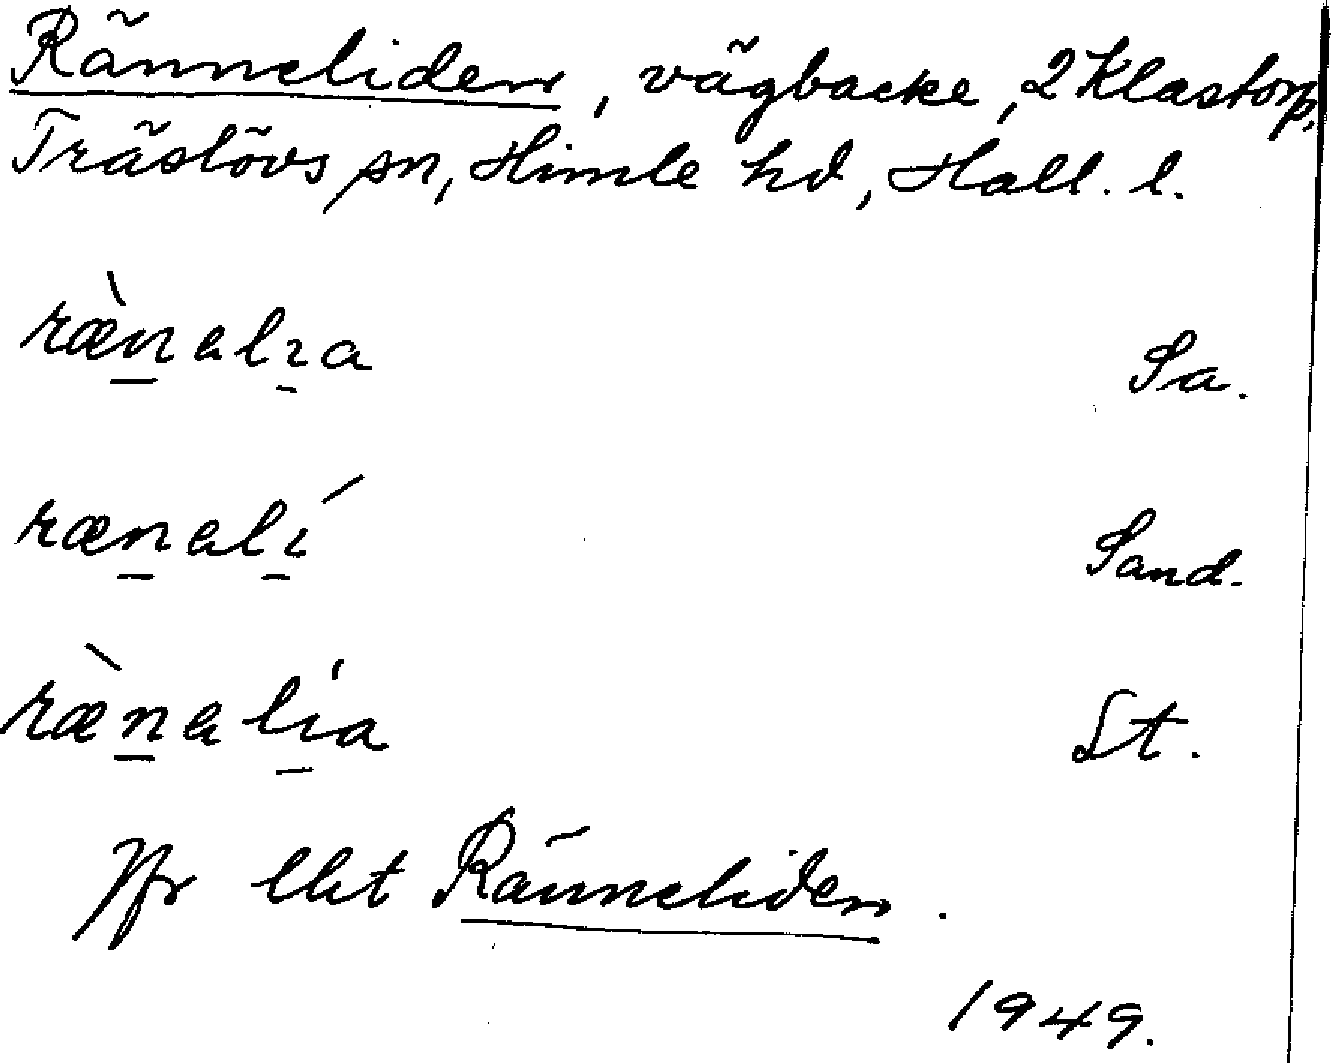 Ränneliden, vägbacke, 2 Klastorp,
Träslövs sn, Himle hd, Hall. l.
ræ̀nalıa Sa.
rænalí Sand.
ræ̀nalía St.
Jfr lllt Ränneliden.
1949.